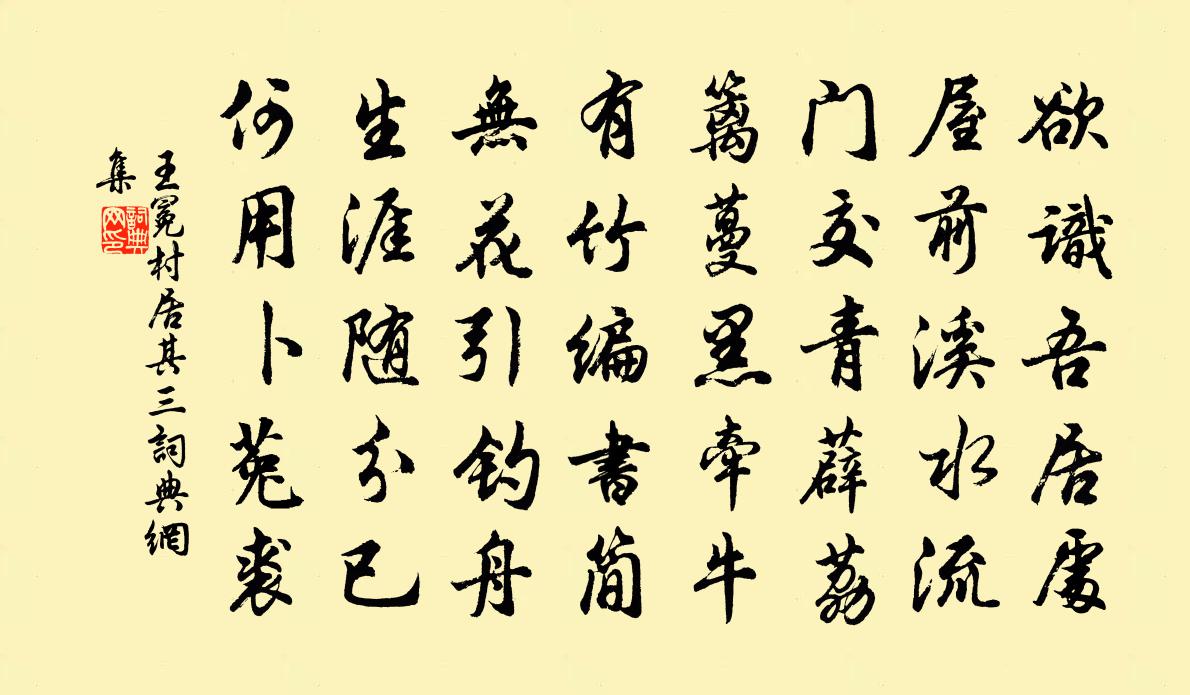 欲識吾居處
屋前溪水流
門交青薜荔
籬蔓黑牽牛
有竹编書简
無花引钓舟
生涯随分已
何用卜菟裘
王冕村居其三詞典網
集
詞典
网印